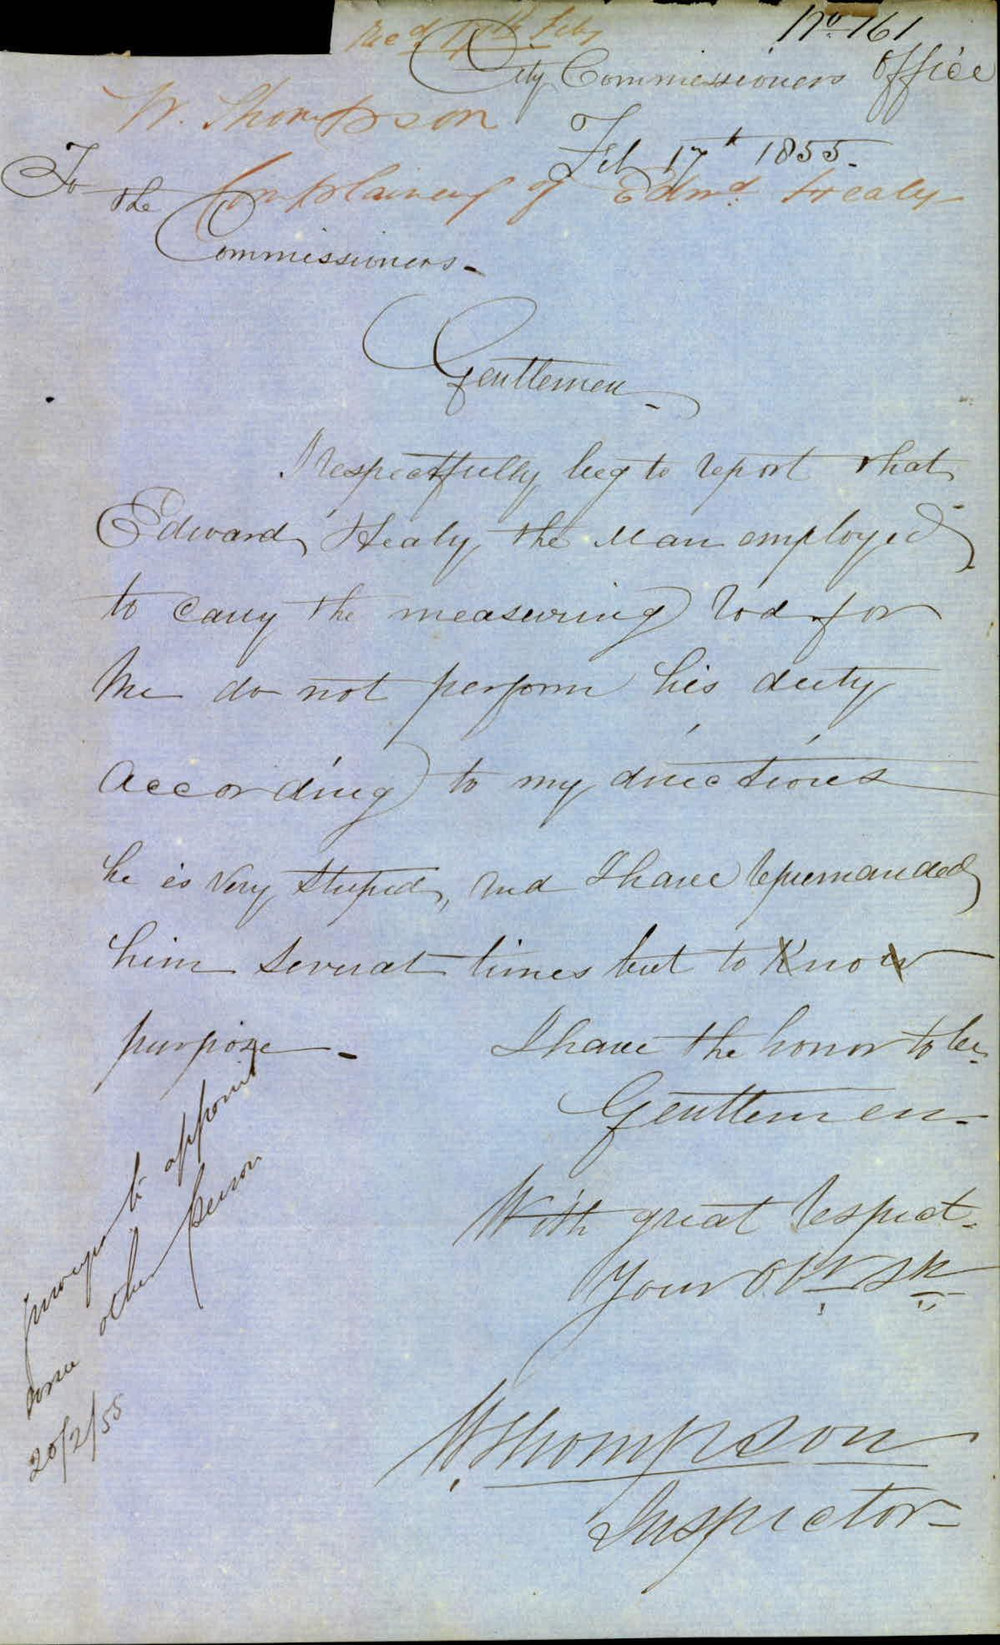 Recd 17th Feby
No 161
City Commissioners Office
W. Thompson
Feb 17th 1855.
Complaining of Edmd. Healy
To
the
Commissioners -
Gentlemen -
I respectfully beg to report that
Edward Healy, the Man employed
to carry the measuring rod for
Me do not perform his duty
According to my directions
he is Very Stupid, and I have repremanded
him several times but to Know
purpose -
I have the honor to be
Gentlemen -
With great respect -
Your Obt St
W. Thompson
Inspector -
to appoint
some other person
20/2/55